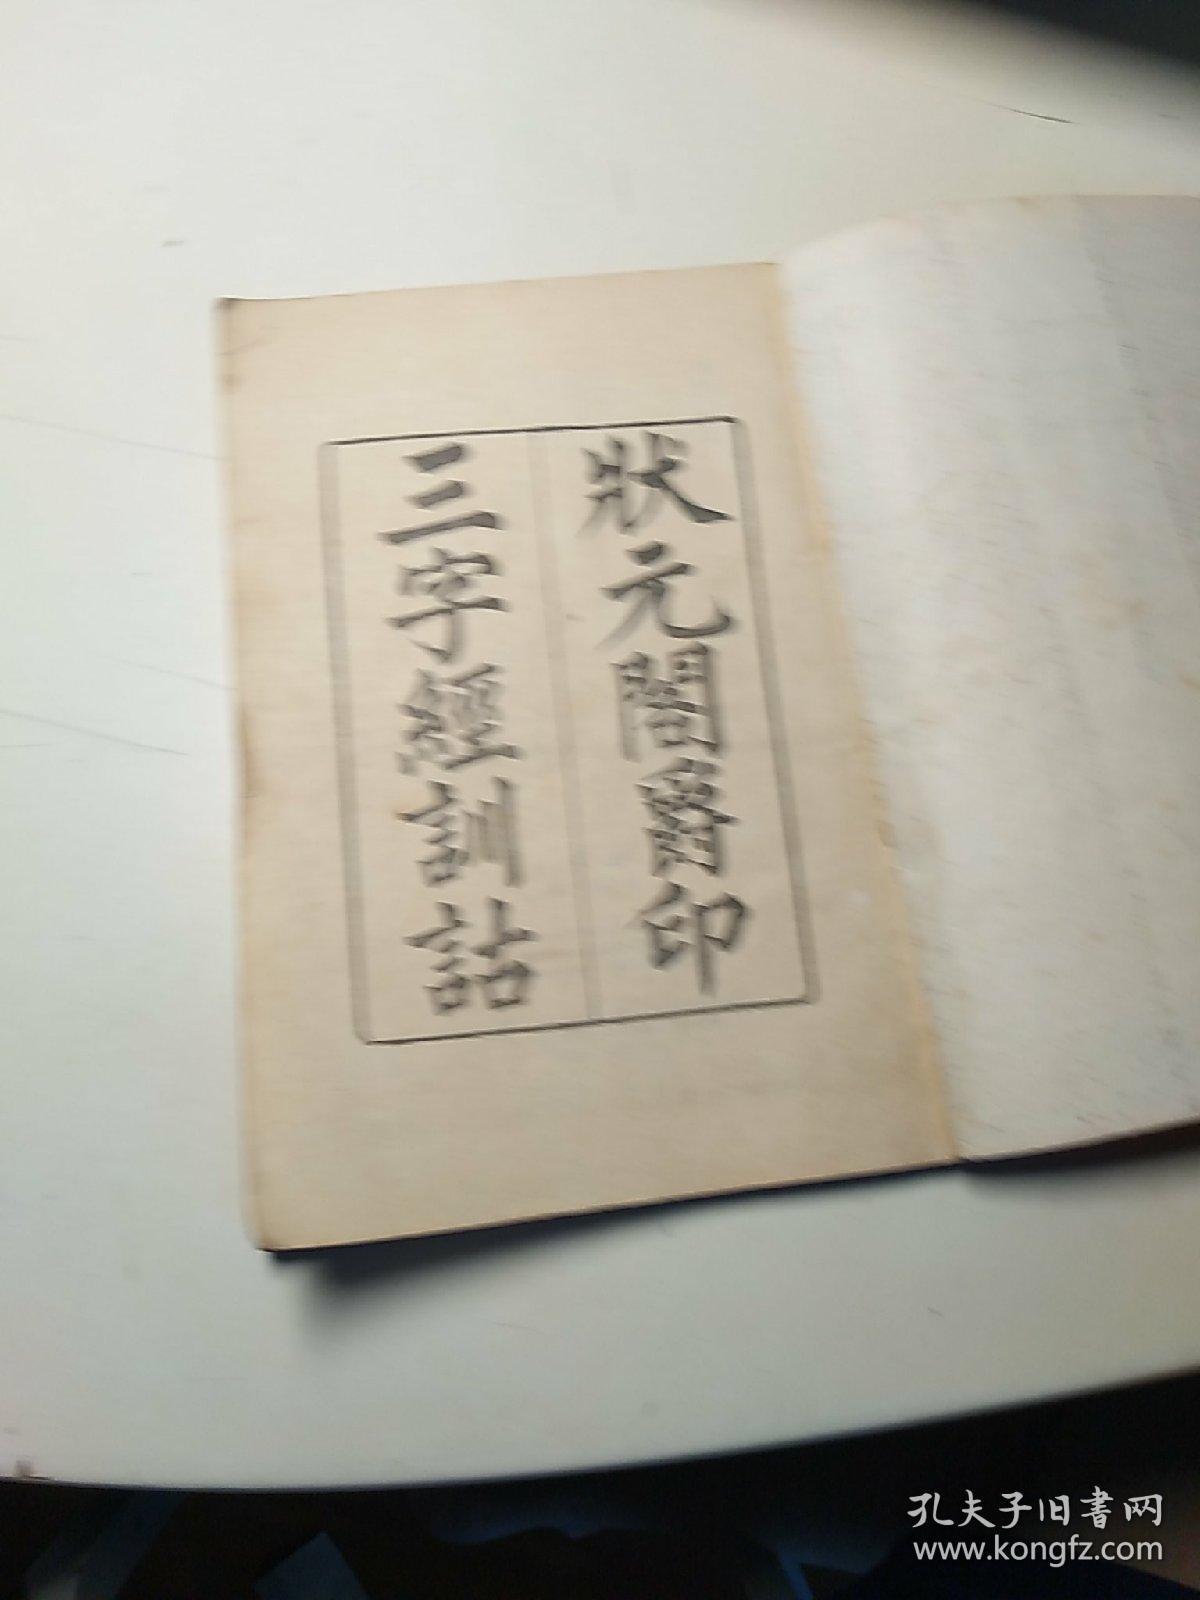 狀元閣爵印
三字經訓詁
孔夫子旧书网
www.kongfz.com